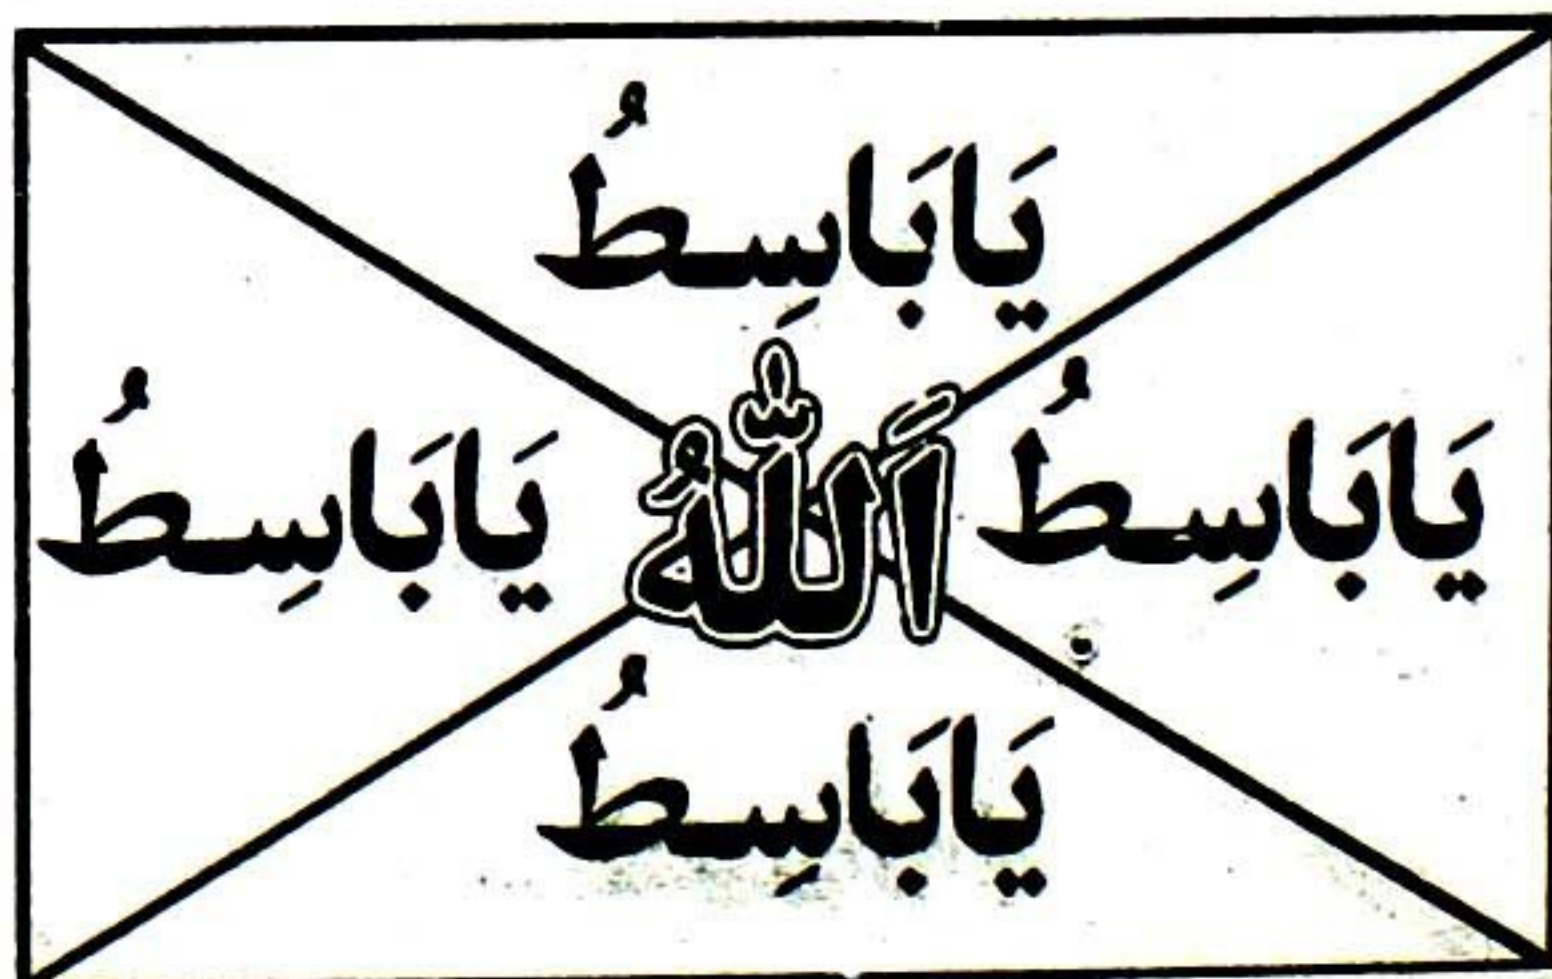 يَابَاسِطُ
يَابَاسِطُ اَللّٰهُ يَابَاسِطُ
يَابَاسِطُ